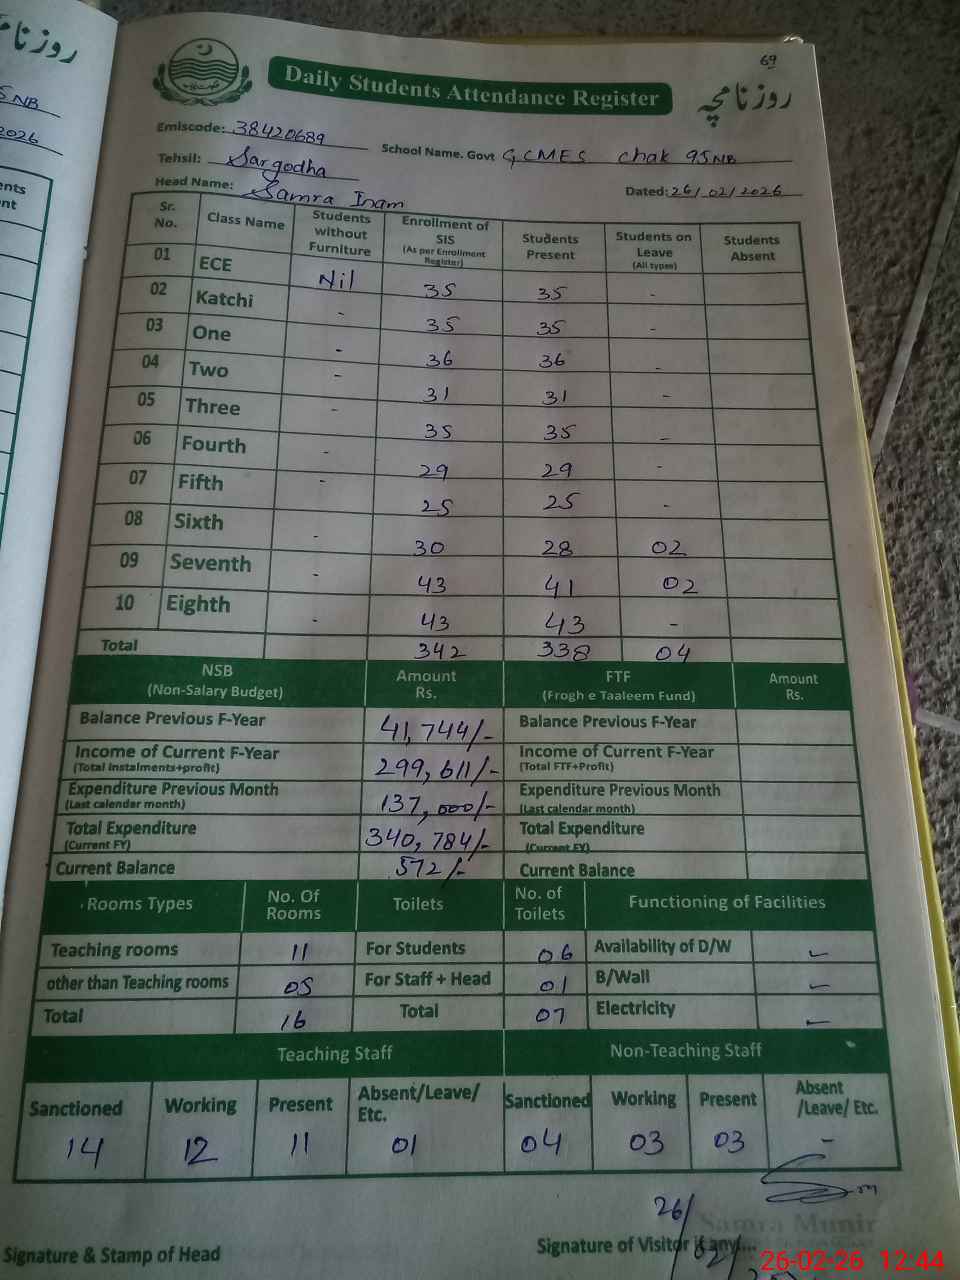 روزنامچہ
69
Daily Students Attendance Register
روزنامچہ
5NB
2026
Emiscode: 38420689
School Name. Govt GCMES Chak 95NB
Tehsil: Sargodha
Head Name: Samra Inam
Dated: 26/02/2026
Sr. No. Class Name Students without Furniture Enrollment of SIS (As per Enrollment Register) Students Present Students on Leave (All types) Students Absent
01 ECE Nil 35 35 -
02 Katchi - 35 35 -
03 One - 36 36 -
04 Two - 31 31 -
05 Three - 35 35 -
06 Fourth - 29 29 -
07 Fifth - 25 25 -
08 Sixth - 30 28 02
09 Seventh - 43 41 02
10 Eighth - 43 43 -
Total 342 338 04
NSB (Non-Salary Budget) Amount Rs. FTF (Frogh e Taaleem Fund) Amount Rs.
Balance Previous F-Year 41,744/- Balance Previous F-Year
Income of Current F-Year (Total Instalments+profit) 299,611/- Income of Current F-Year (Total FTF+Profit)
Expenditure Previous Month (Last calendar month) 137,000/- Expenditure Previous Month (Last calendar month)
Total Expenditure (Current FY) 340,784/- Total Expenditure (Current FY)
Current Balance 572/- Current Balance
Rooms Types No. Of Rooms Toilets No. of Toilets Functioning of Facilities
Teaching rooms 11 For Students 06 Availability of D/W ✓
other than Teaching rooms 05 For Staff + Head 01 B/Wall ✓
Total 16 Total 07 Electricity ✓
Teaching Staff Non-Teaching Staff
Sanctioned Working Present Absent/Leave/ Etc. Sanctioned Working Present Absent /Leave/ Etc.
14 12 11 01 04 03 03 -
26/
02/
Samra Munir
Signature & Stamp of Head
Signature of Visitor if any....
26-02-26 12:44